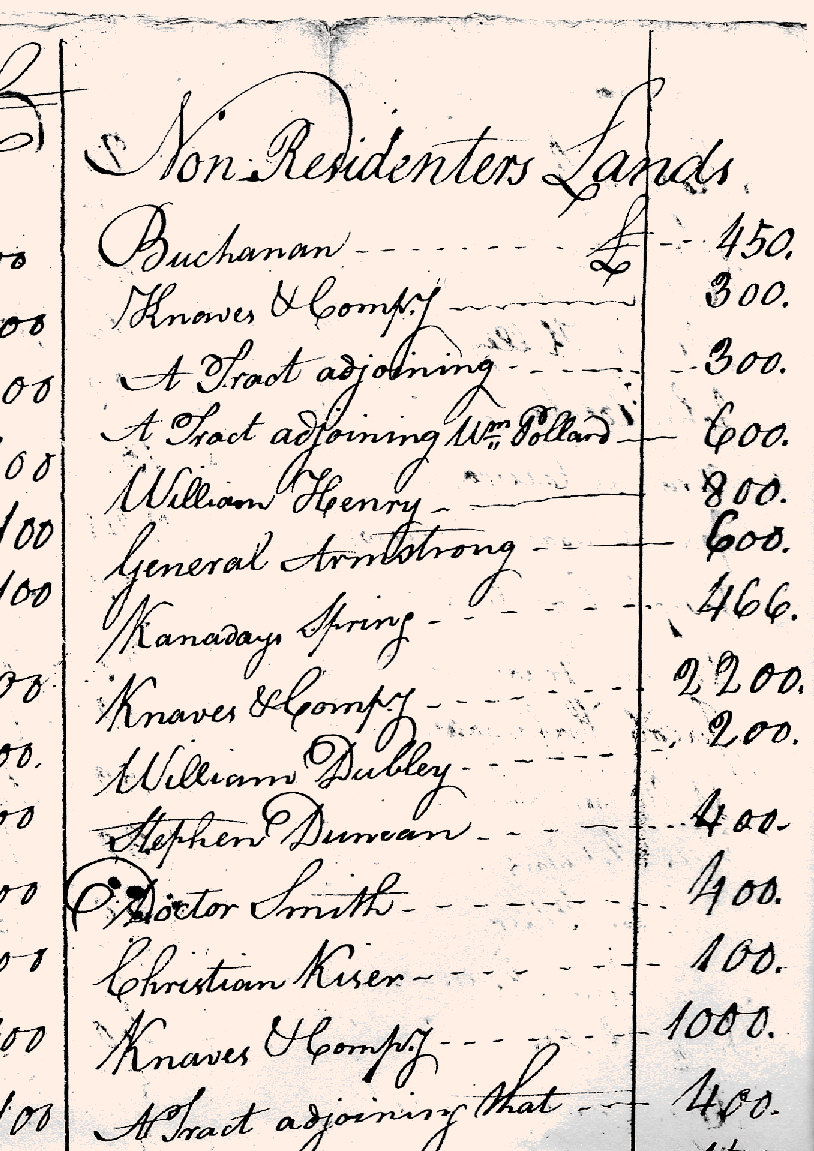 Non Residenters Lands
Buchanan - - - - - - - £ - - 450.
Knaves & Compy 300.
A Tract adjoining - - - - - 300.
A Tract adjoining Wm Pollard 600.
William Henry 800.
General Armstrong - 600.
Kanadays Spring - - - - - 466.
Knaves & Compy - - - - - 2200.
William Dubley - - - - - 200.
Stephen Duncan - - - - - 400.
Doctor Smith - - - - - 400.
Christian Kiser - - - - - 100.
Knaves & Compy - - - - - 1000.
A Tract adjoining that - - - 400.